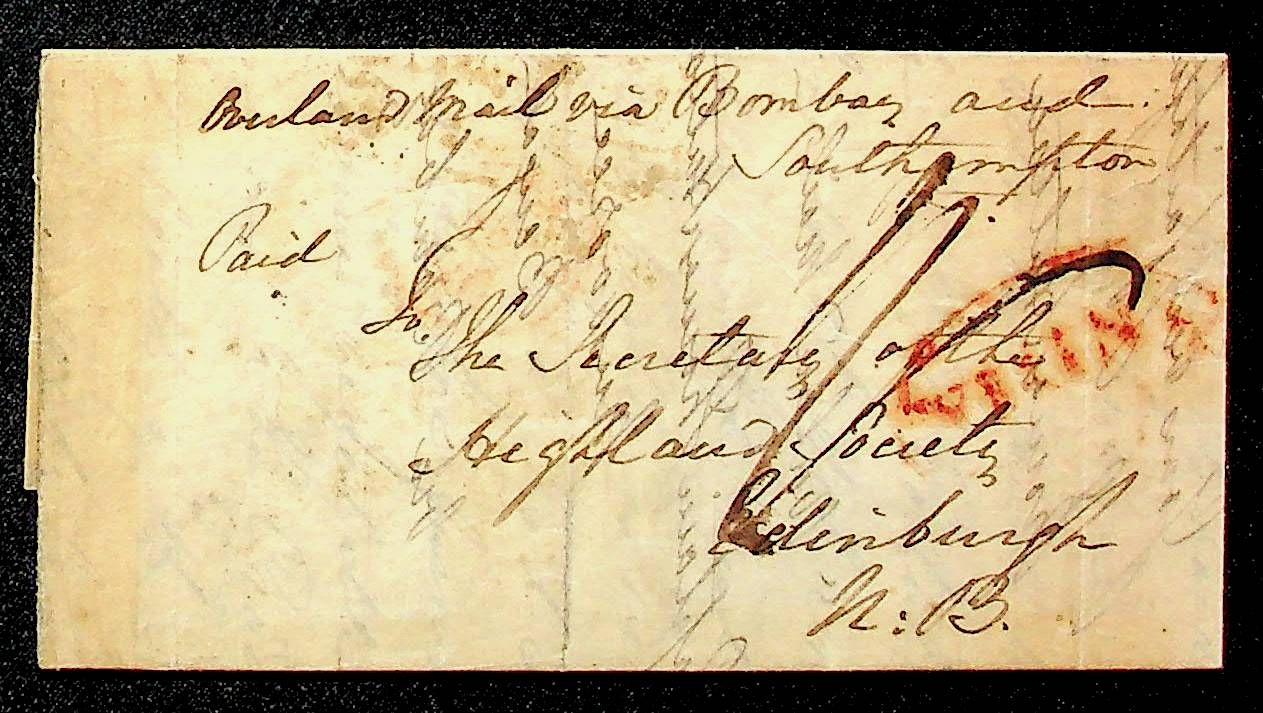 Overland Mail via Bombay and
Southampton
Paid
To.
The Secretary of the
Highland Society
Edinburgh
N: B.